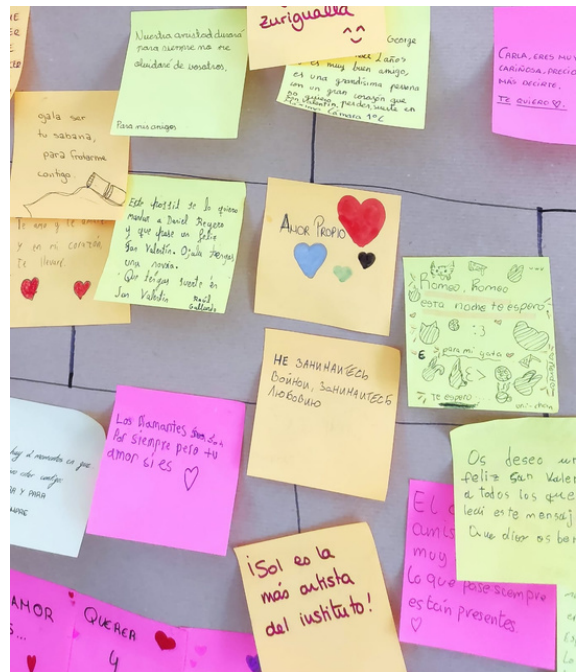 zurigualla
Nuestra amistad durará
para siempre no me
olvidaré de vosotros.
Para mis amigos
George
años
es muy buen amigo,
es una grandísima persona
con un gran corazón que
no quiero perder, suerte en
San Valentín,
Cámara 1ºC
CARLA, ERES MUY
CARIÑOSA, PRECIO
MÁS DECIRTE.
TE QUIERO
gala ser
tu sabana,
para frotarme
contigo.
Te amo y te
y en mi corazón
te llevaré.
Este possit se lo quiero
mandar a Daniel Reguero
y que pase un feliz
San Valentín. Ojala tengas
una novia.
Que tengas suerte en
San Valentín
Raúl
Gallardo
AMOR PROPIO
Romeo, Romeo
esta noche te espero
:3
para mi gata
Te espero
НЕ ЗАНИМАИТЕСЬ
ВОЙНОЙ, ЗАНИМАИТЕСЬ
ЛЮБОВЬЮ
Los Diamantes son
Por siempre pero tu
amor si es
hay el momento en que
Y PARA
Os deseo un
feliz San Valen
a todos los que
ledi este mensaj
Que dios os ben
El
amis
muy
lo que pase siempre
están presentes.
¡Sol es la
más artista
del instituto!
AMOR
S...
QUERER
Y